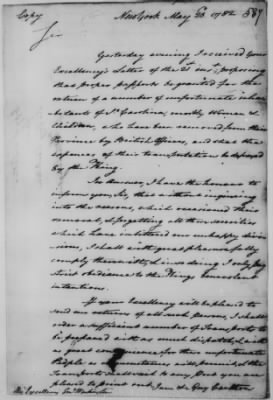 Copy
New York May 1782 587
Sir
Yesterday evening I received your
Excellency's Letter of the 21st inst. proposing
that proper passports be granted for the
return of a number of unfortunate inhab-
itants of So Carolina, mostly Women &
Children, who have been removed from their
Province by British Officers, and that the
expences of their transportation be defrayed
by the King.
In answer, I have the honour to
inform you Sir, that without enquiring
into the reasons which occasioned their
removal, & forgetting all those severities
which have intensified our unhappy divi-
sions, I shall with great pleasure fully
comply therewith, & in so doing I only pay
strict obedience to the Kings benevolent
intentions.
If your Excellency will be pleased to
send me returns of all such persons, I shall
order a sufficient number of Transports to
be prepared with as much dispatch, & with
as great convenience for these unfortunate
People as circumstances will permit & the
Transports shall sail to any Port you are
pleased to point out. I am &c Guy Carleton
His Excellency Genl Washington